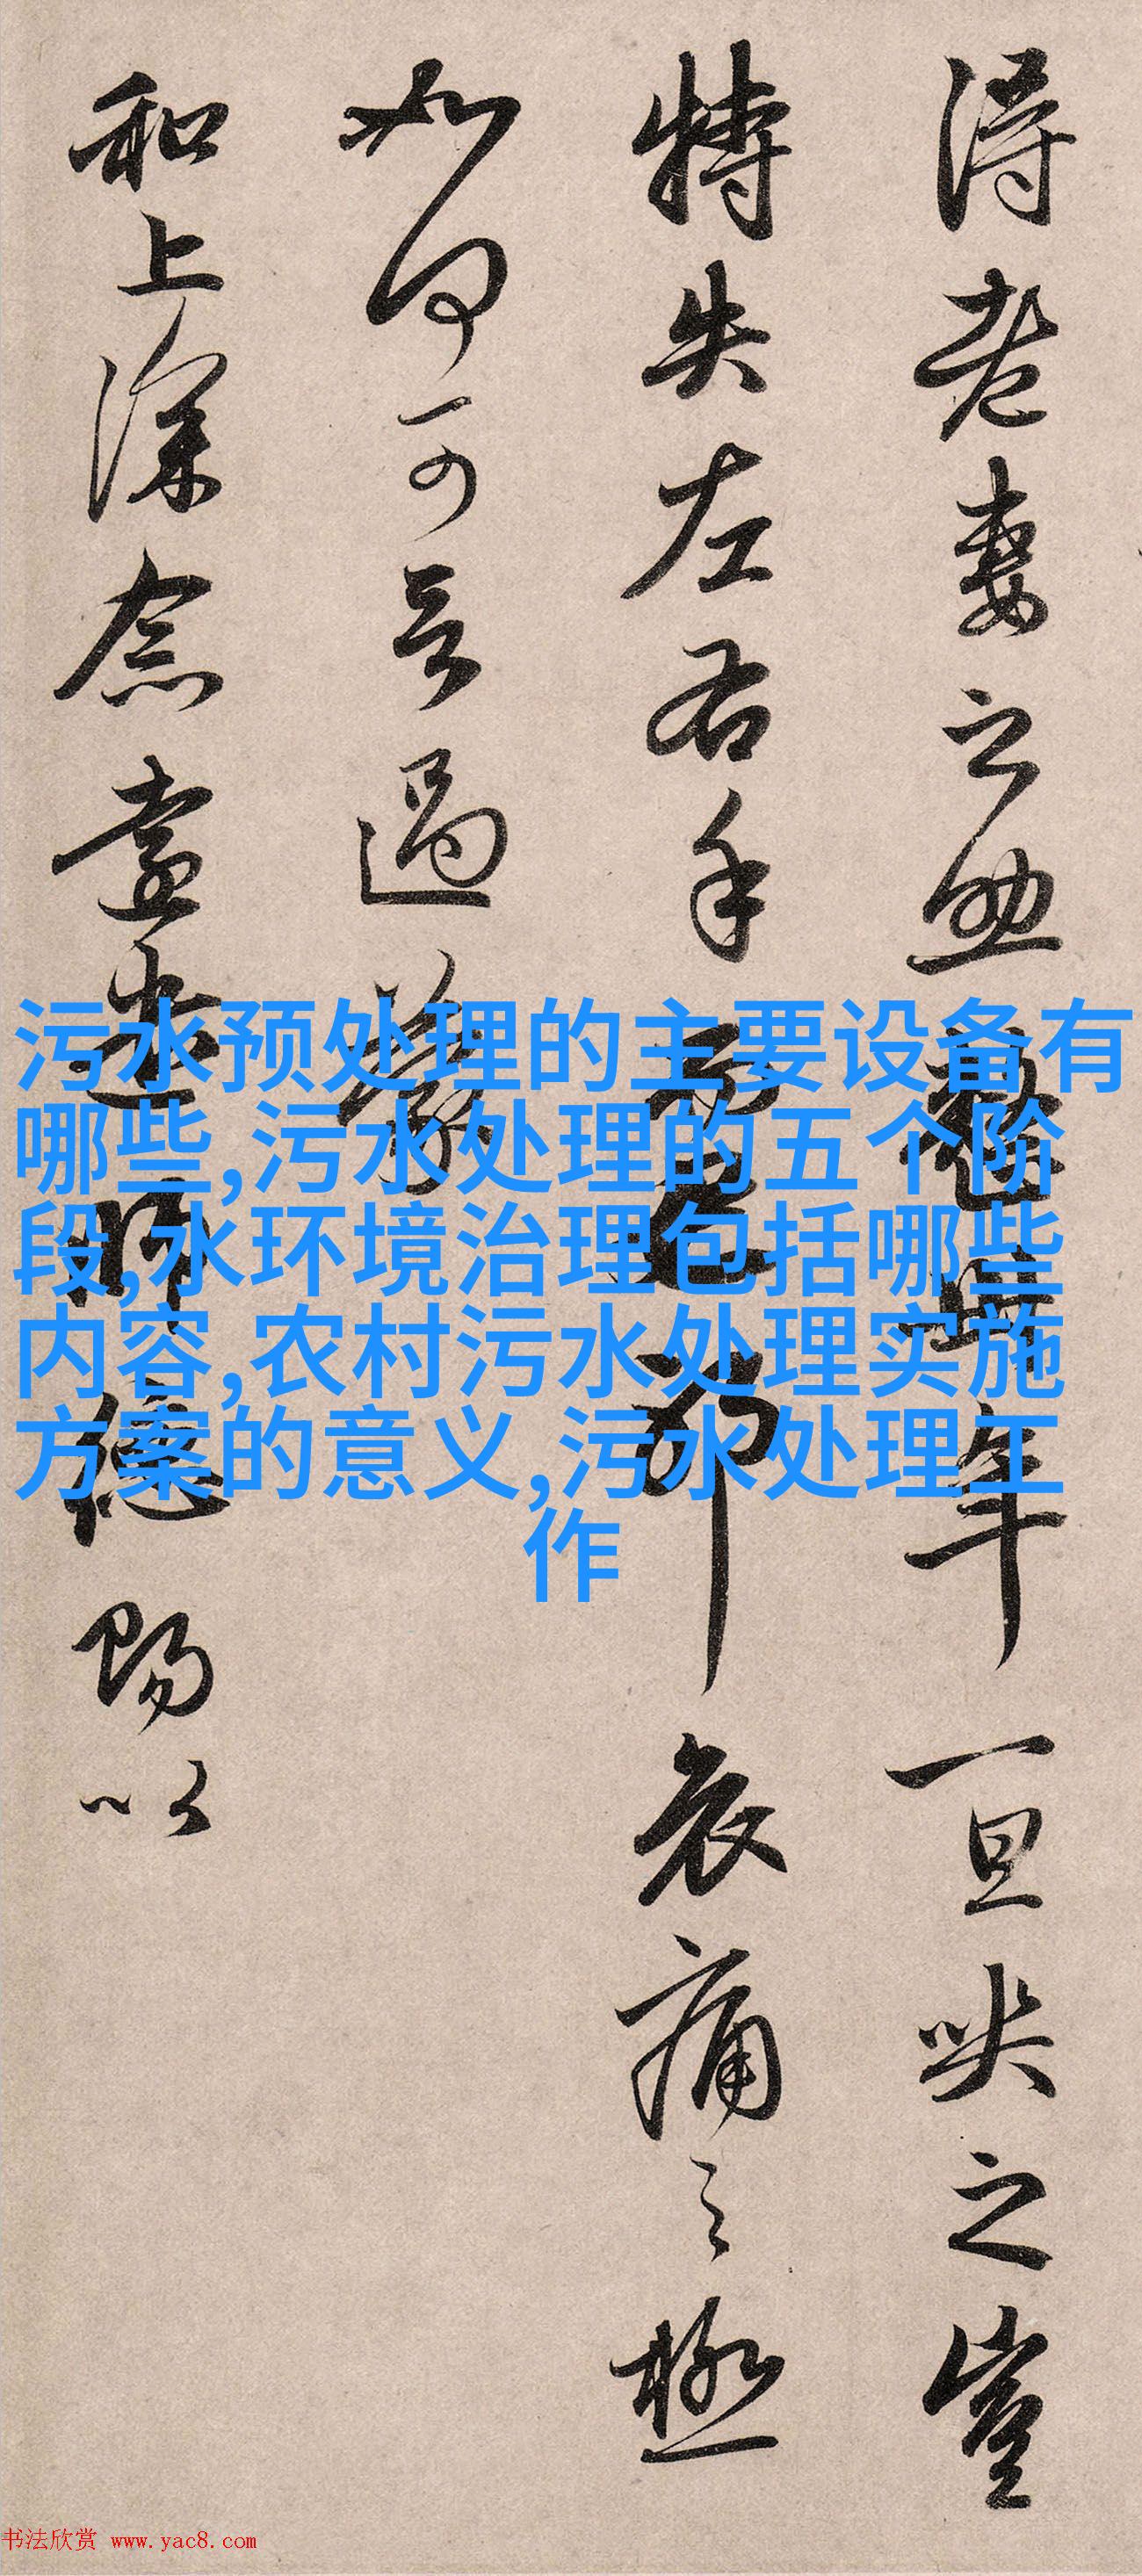 得老妻之助整卅年一旦哭之豈
特失左右手而已耶哀痛之極
如何可言過蒙
和上深念遠遣師德賜以
污水预处理的主要设备有
哪些,污水处理的五个阶
段,水环境治理包括哪些
内容,农村污水处理实施
方案的意义,污水处理工
作
书法欣赏 www.yac8.com